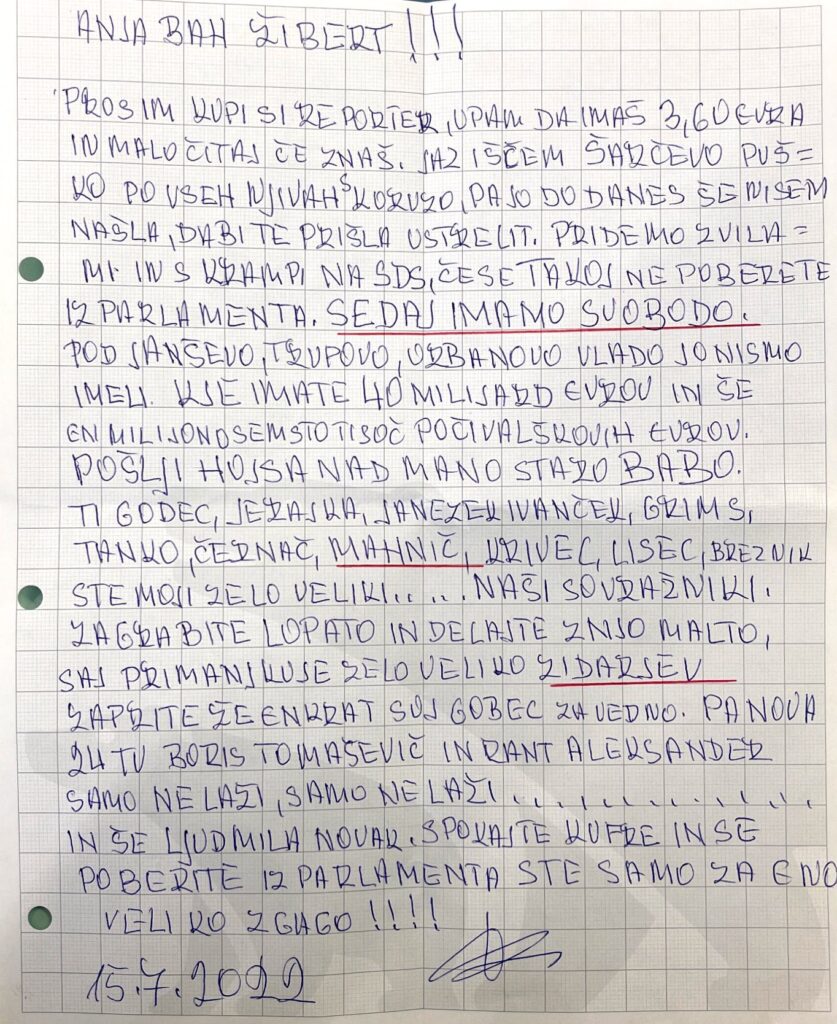 ANJA BAH ŽIBERT!!!
PROSIM KUPI SI REPORTER, UPAM DA IMAŠ 3,60 EVRA
IN MALO ČITAJ ČE ZNAŠ. JAZ IŠČEM ŠARČEVO PUŠ=
KO PO VSEH NJIVAH S KORUZO, PA JO DO DANES ŠE NISEM
NAŠLA, DA BI TE PRIŠLA USTRELIT. PRIDEMO Z VILA=
MI IN S KRAMPI NA SDS, ČE SE TAKOJ NE POBERETE
IZ PARLAMENTA. SEDAJ IMAMO SVOBODO.
POD JANŠEVO, TRUPOVO, URBANOVO VLADO JO NISMO
IMELI. KJE IMATE 40 MILIJARD EVROV IN ŠE
EN MILIJON OSEMSTO TISOČ POČIVALŠKOVIH EVROV.
POŠLJI HOJSA NAD MANO STARO BABO.
TI GODEC, JERAJKA, JANEZEK IVANČEK, GRIMS,
TANKO, ČERNAČ, MAHNIČ, KRIVEC, LISEC, BREZNIK
STE MOJI ZELO VELIKI.. . .. NAŠI SOVRAŽNIKI.
ZAGRABITE LOPATO IN DELAJTE Z NJO MALTO,
SAJ PRIMANJKUJE ZELO VELIKO ZIDARJEV
ZAPRITE ŽE ENKRAT SVOJ GOBEC ZA VEDNO. PA NOVA
24 TV BORIS TOMAŠEVIČ IN RANT ALEKSANDER
SAMO NE LAŽI, SAMO NE LAŽI. . . . . . . . . . . . .
IN ŠE LJUDMILA NOVAK. SPOKAJTE KUFRE IN SE
POBERITE IZ PARLAMENTA STE SAMO ZA ENO
VELIKO ZGAGO!!!!
15.7.2022